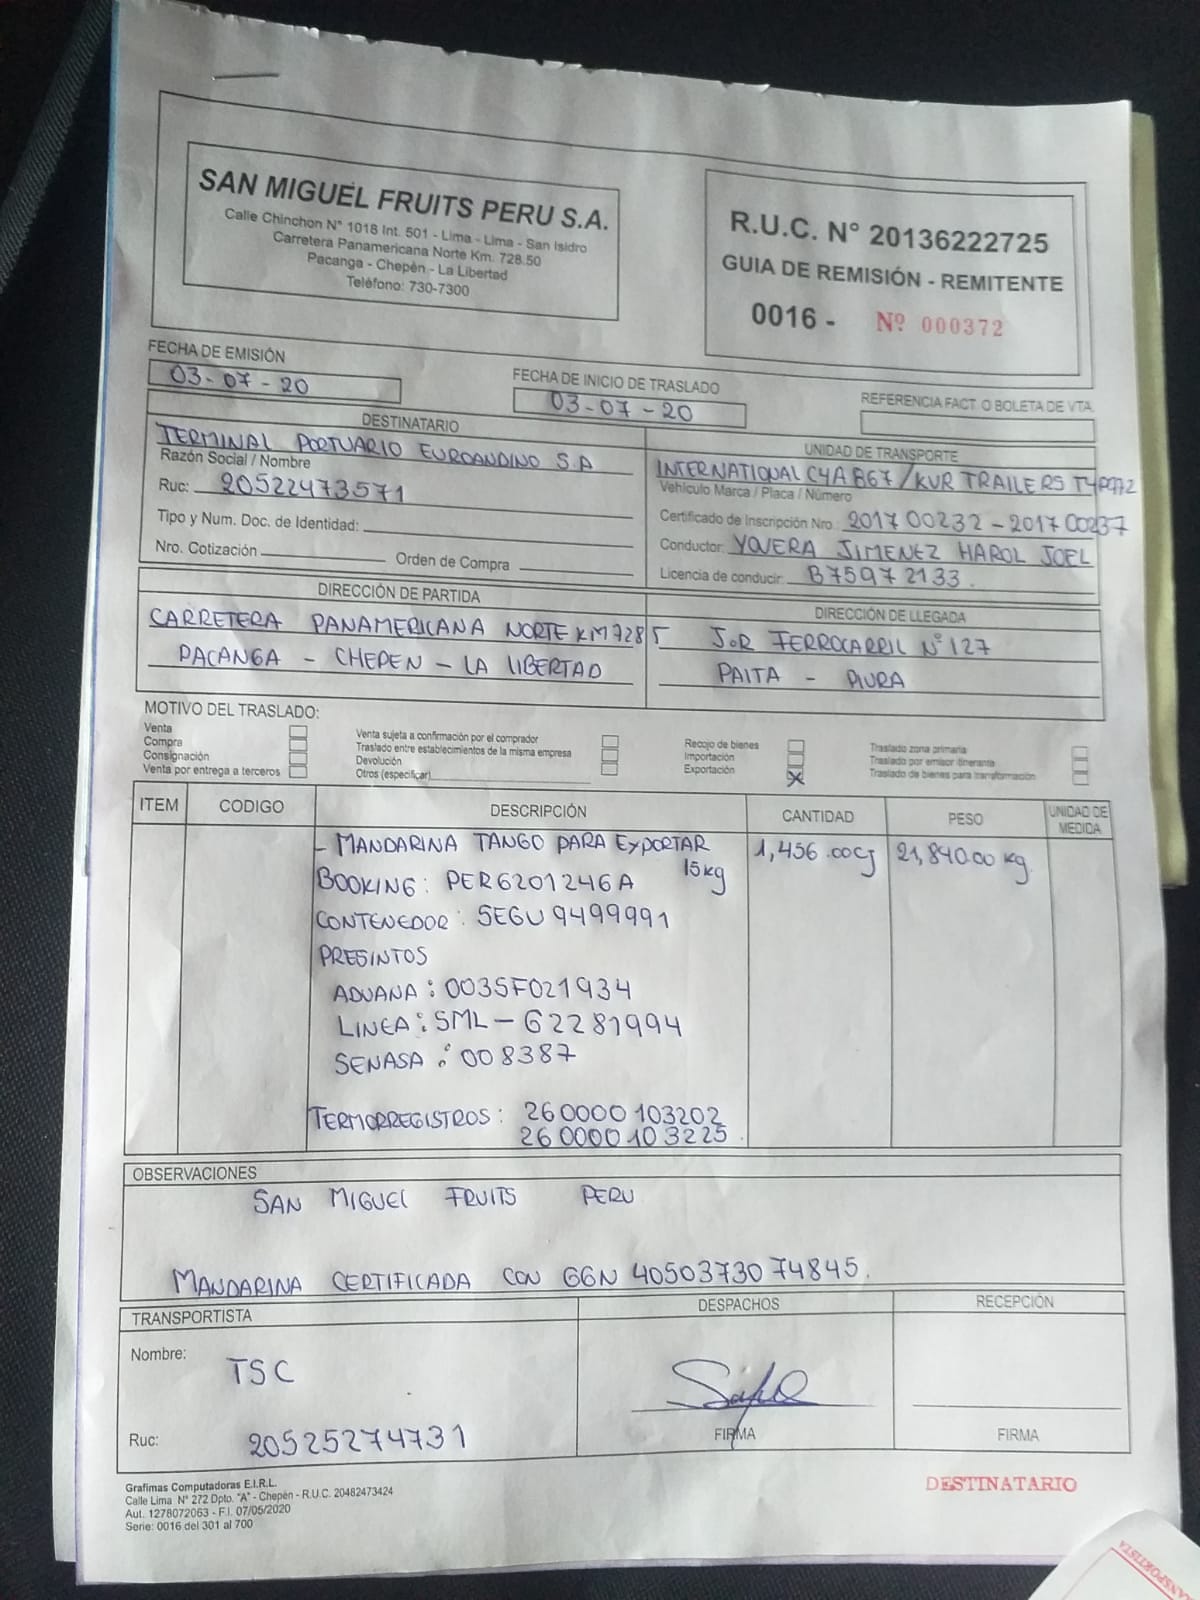 SAN MIGUEL FRUITS PERU S.A.
Calle Chinchon N° 1018 Int. 501 - Lima - Lima - San Isidro
Carretera Panamericana Norte Km. 728.50
Pacanga - Chepén - La Libertad
Teléfono: 730-7300
R.U.C. N° 20136222725
GUIA DE REMISIÓN - REMITENTE
0016 - Nº 000372
FECHA DE EMISIÓN
03-07-20
FECHA DE INICIO DE TRASLADO
03-07-20
REFERENCIA FACT. O BOLETA DE VTA.
DESTINATARIO
TERMINAL PORTUARIO EUROANDINO S.A
Razón Social / Nombre
Ruc: 20522473571
Tipo y Num. Doc. de Identidad:
Nro. Cotización Orden de Compra
UNIDAD DE TRANSPORTE
INTERNATIONAL C4A867/KUR TRAILERS T4P972
Vehículo Marca / Placa / Número
Certificado de Inscripción Nro.: 201700232-201700237
Conductor: YOVERA JIMENEZ HAROL JOEL
Licencia de conducir: B75972133.
DIRECCIÓN DE PARTIDA
CARRETERA PANAMERICANA NORTE KM7285
PACANGA - CHEPEN - LA LIBERTAD
DIRECCIÓN DE LLEGADA
JOR FERROCARRIL N°127
PAITA - PIURA
MOTIVO DEL TRASLADO:
Venta
Compra
Consignación
Venta por entrega a terceros
Venta sujeta a confirmación por el comprador
Traslado entre establecimientos de la misma empresa
Devolución
Otros (especificar)
Recojo de bienes
Importación
Exportación X
Traslado zona primaria
Traslado por emisor itinerante
Traslado de bienes para transformación
ITEM CODIGO DESCRIPCIÓN CANTIDAD PESO UNIDAD DE MEDIDA
- MANDARINA TANGO PARA EXPORTAR 1,456.00CJ 21,840.00 kg.
15kg
BOOKING: PER6201246A
CONTENEDOR: SEGU 9499991
PRESINTOS
ADUANA: 0035F021934
LINEA: SML-62281994
SENASA: 008387
TERMORREGISTROS: 260000103202
260000103225.
OBSERVACIONES
SAN MIGUEL FRUITS PERU
MANDARINA CERTIFICADA CON GGN 4050373074845.
TRANSPORTISTA
Nombre: TSC
Ruc: 20525274731
DESPACHOS
FIRMA
RECEPCIÓN
FIRMA
Grafimas Computadoras E.I.R.L.
Calle Lima N° 272 Dpto. "A" - Chepén - R.U.C. 20482473424
Aut. 1278072063 - F.I. 07/05/2020
Serie: 0016 del 301 al 700
DESTINATARIO